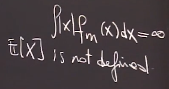 ∫|x|f_m(x)dx=∞
E[X] is not defined.